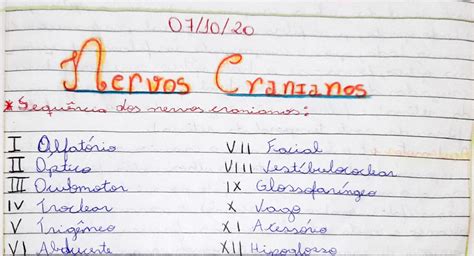 07/10/20
Nervos Cranianos
* Sequência dos nervos cranianos:
I Olfatório VII Facial
II Óptico VIII Vestíbulococlear
III Oculomotor IX Glossofaríngeo
IV Troclear X Vago
V Trigêmeo XI Acessório
VI Abducente XII Hipoglosso